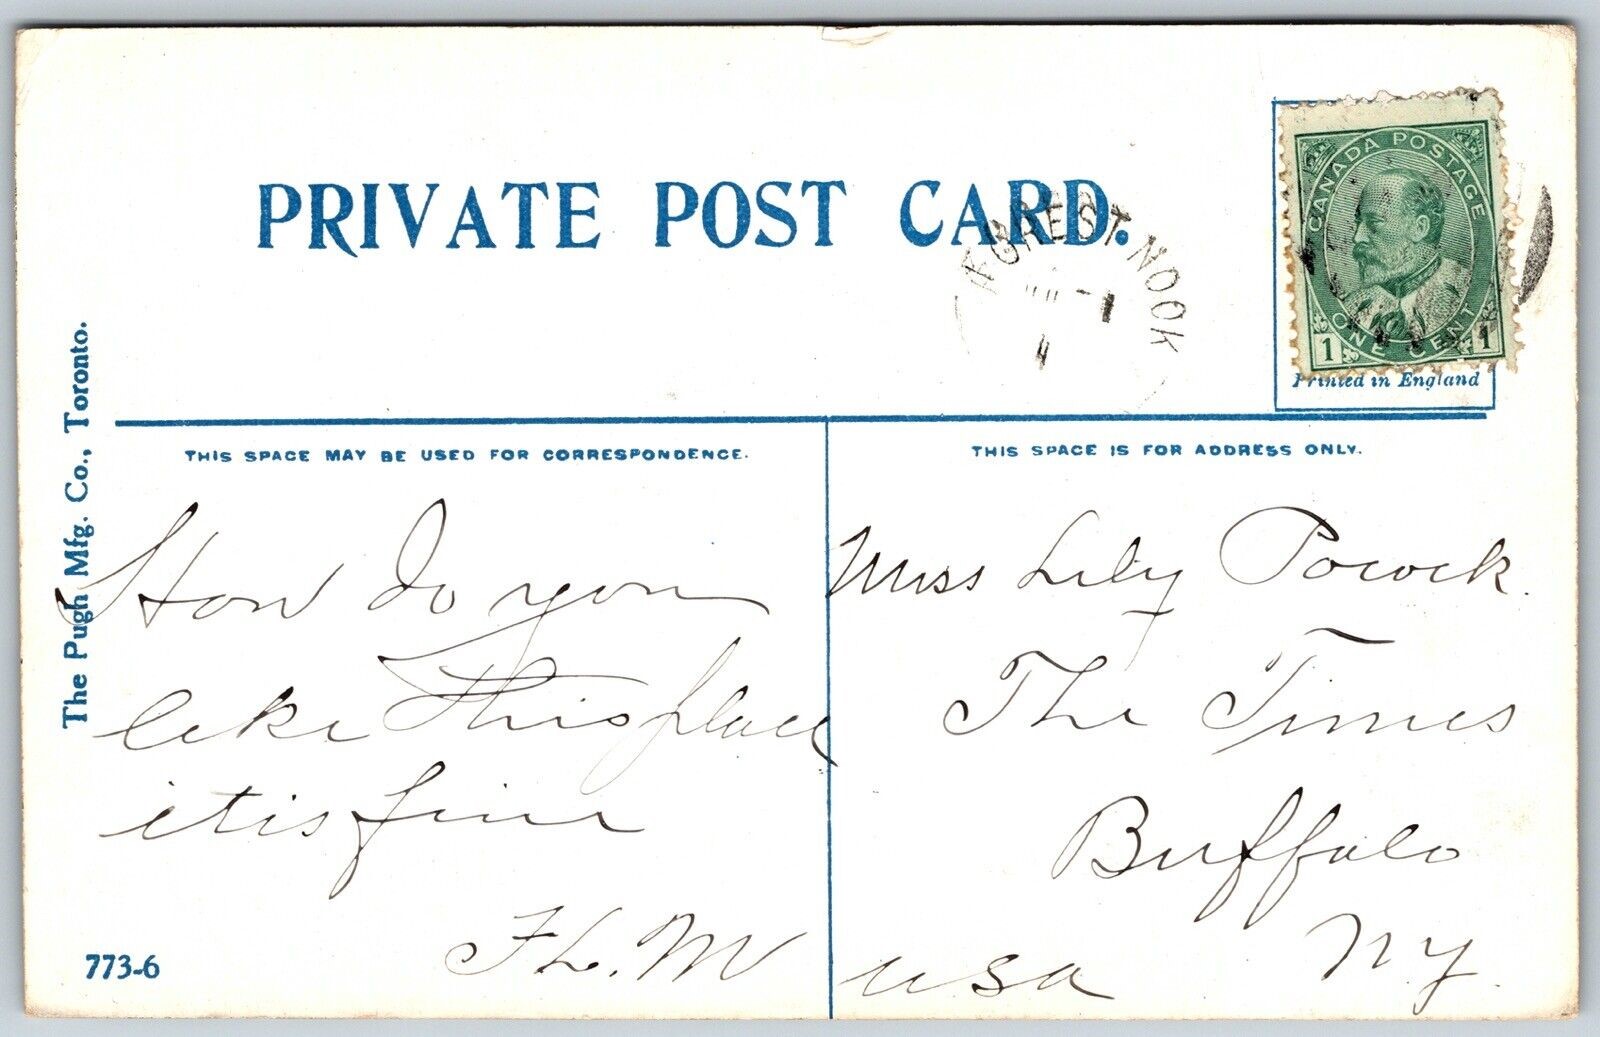 PRIVATE POST CARD.
FOREST NOOK
CANADA POSTAGE
1 ONE CENT 1
Printed in England
The Pugh Mfg. Co., Toronto.
THIS SPACE MAY BE USED FOR CORRESPONDENCE.
THIS SPACE IS FOR ADDRESS ONLY.
How do you
like this place
it is fine
F L. M
Miss Lily Pocock.
The Times
Buffalo
NY.
USA
773-6